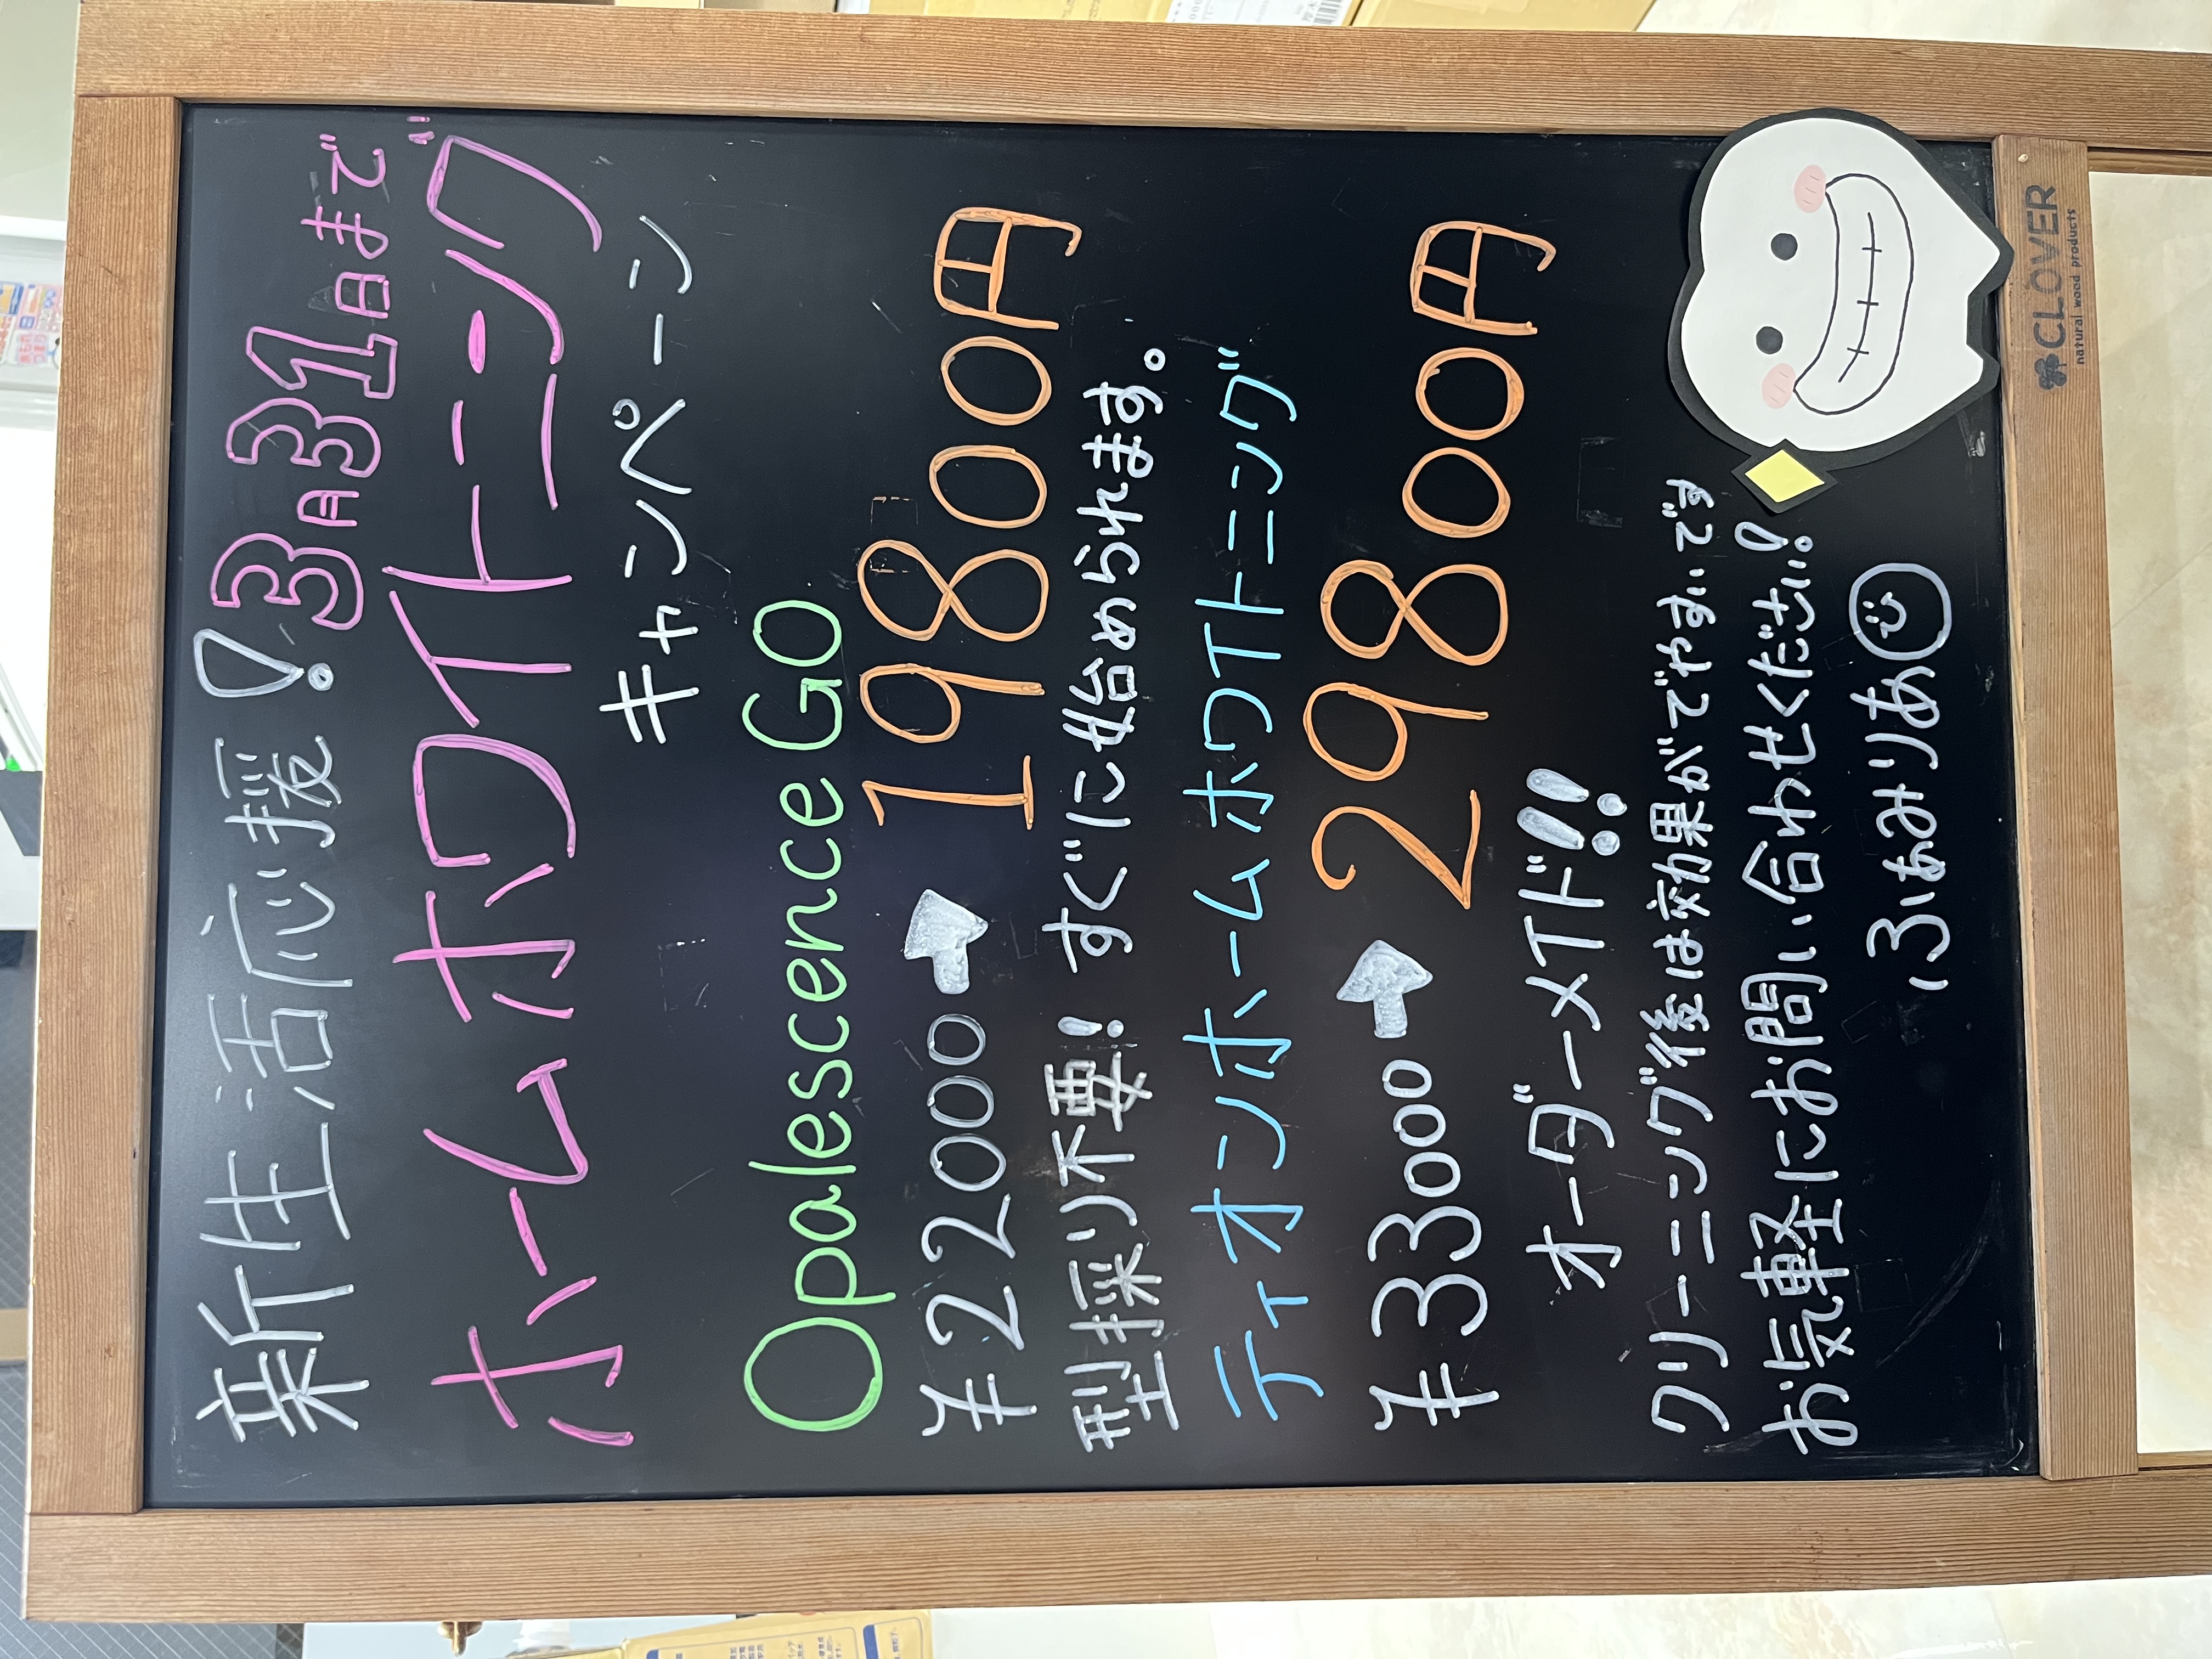 新生活応援! 3月31日まで
ホームホワイトニング
キャンペーン
Opalescence GO
¥22000 ➡ 19800円
型採り不要! すぐに始められます。
ティオンホームホワイトニング
¥33000 ➡ 29800円
オーダーメイド!!
クリーニング後は効果がでやすいです
お気軽にお問い合わせください。!
ふぁみりあ☺
CLOVER
natural wood products